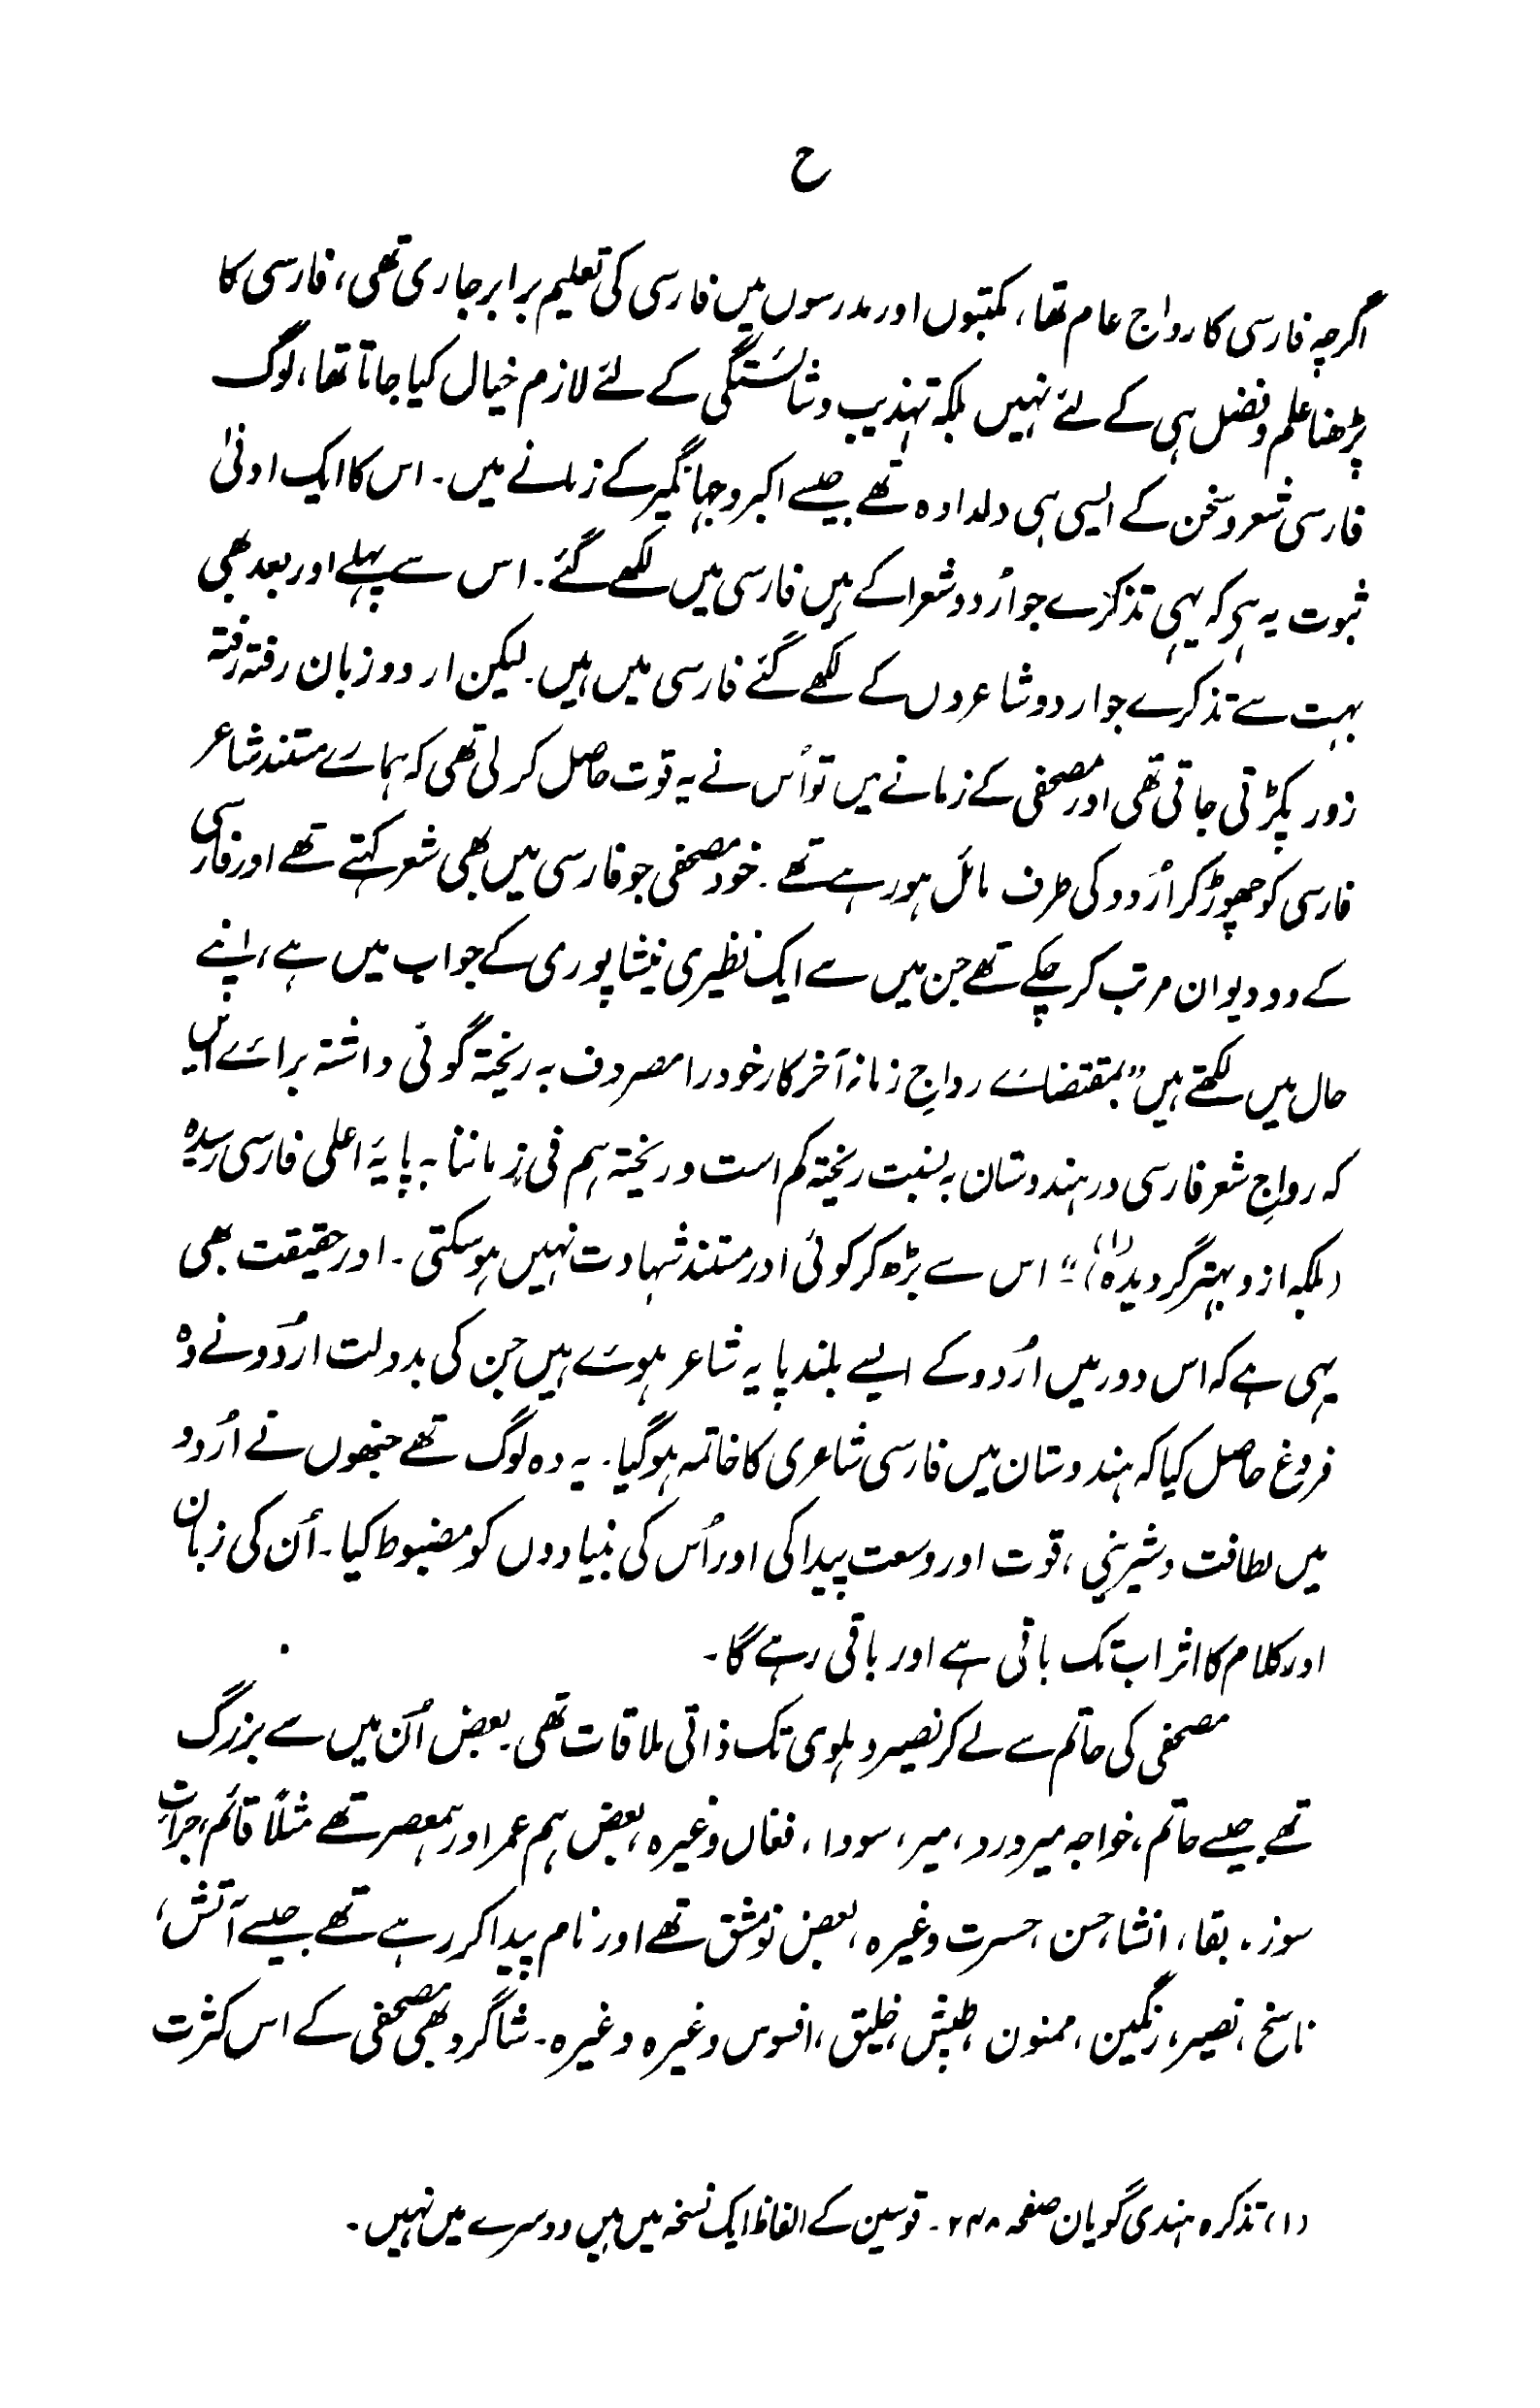 ح
اگرچہ فارسی کا رواج عام تھا، مکتبوں اور مدرسوں میں فارسی کی تعلیم برابر جاری تھی، فارسی کا
پڑھنا علم و فضل ہی کے لئے نہیں بلکہ تہذیب و شائستگی کے لئے لازم خیال کیا جاتا تھا، لوگ
فارسی شعر و سخن کے ایسی ہی دلدادہ تھے جیسے اکبر و جہانگیر کے زمانے میں۔ اس کا ایک ادنیٰ
ثبوت یہ ہی کہ یہی تذکرے جو اُردو شعرا کے ہیں فارسی میں لکھے گئے۔ اس سے پہلے اور بعد بھی
بہت سے تذکرے جو اردو شاعروں کے لکھے گئے فارسی میں ہیں۔ لیکن اردو زبان رفتہ رفتہ
زور پکڑتی جاتی تھی اور مصحفی کے زمانے میں تو اُس نے یہ قوت حاصل کر لی تھی کہ ہمارے مستند شاعر
فارسی کو چھوڑ کر اُردو کی طرف مائل ہو رہے تھے۔ خود مصحفی جو فارسی میں بھی شعر کہتے تھے اور فارسی
کے دو دیوان مرتب کر چکے تھے جن میں سے ایک نظیری نیشاپوری کے جواب میں ہے، اپنے
حال میں لکھتے ہیں "بمقتضائے رواجِ زمانہ آخر کار خود را مصروف بہ ریختہ گوئی داشتہ برائے ایں
کہ رواجِ شعر فارسی در ہندوستان بہ نسبت ریختہ کم است و ریختہ ہم فی زماننا بہ پایۂ اعلی فارسی رسیدہ
(بلکہ ازو بہتر گردیدہ)(۱)" اس سے بڑھ کر کوئی اور مستند شہادت نہیں ہو سکتی۔ اور حقیقت بھی
یہی ہے کہ اس دور میں اُردو کے ایسے بلند پایہ شاعر ہوئے ہیں جن کی بدولت اُردو نے وہ
فروغ حاصل کیا کہ ہندوستان میں فارسی شاعری کا خاتمہ ہو گیا۔ یہ وہ لوگ تھے جنھوں نے اُردو
میں لطافت و شیرینی، قوت اور وسعت پیدا کی اور اُس کی بنیادوں کو مضبوط کیا۔ اُن کی زبان
اور کلام کا اثر اب تک باقی ہے اور باقی رہے گا۔
مصحفی کی حاتم سے لے کر نصیر دہلوی تک ذاتی ملاقات تھی۔ بعض اُن میں سے بزرگ
تھے جیسے حاتم، خواجہ میر درد، میر، سودا، فغاں وغیرہ، بعض ہم عمر اور ہمعصر تھے مثلاً قائم، جرأت
سوز۔ بقا، انشا، حسن، حسرت وغیرہ، بعض نومشق تھے اور نام پیدا کر رہے تھے جیسے آتش،
ناسخ، نصیر، رنگین، ممنون، طپش، خلیق، افسوس وغیرہ وغیرہ۔ شاگرد بھی مصحفی کے اس کثرت
(۱) تذکرہ ہندی گویان صفحہ ۲۴۸۔ قوسین کے الفاظ ایک نسخہ میں ہیں دوسرے میں نہیں۔